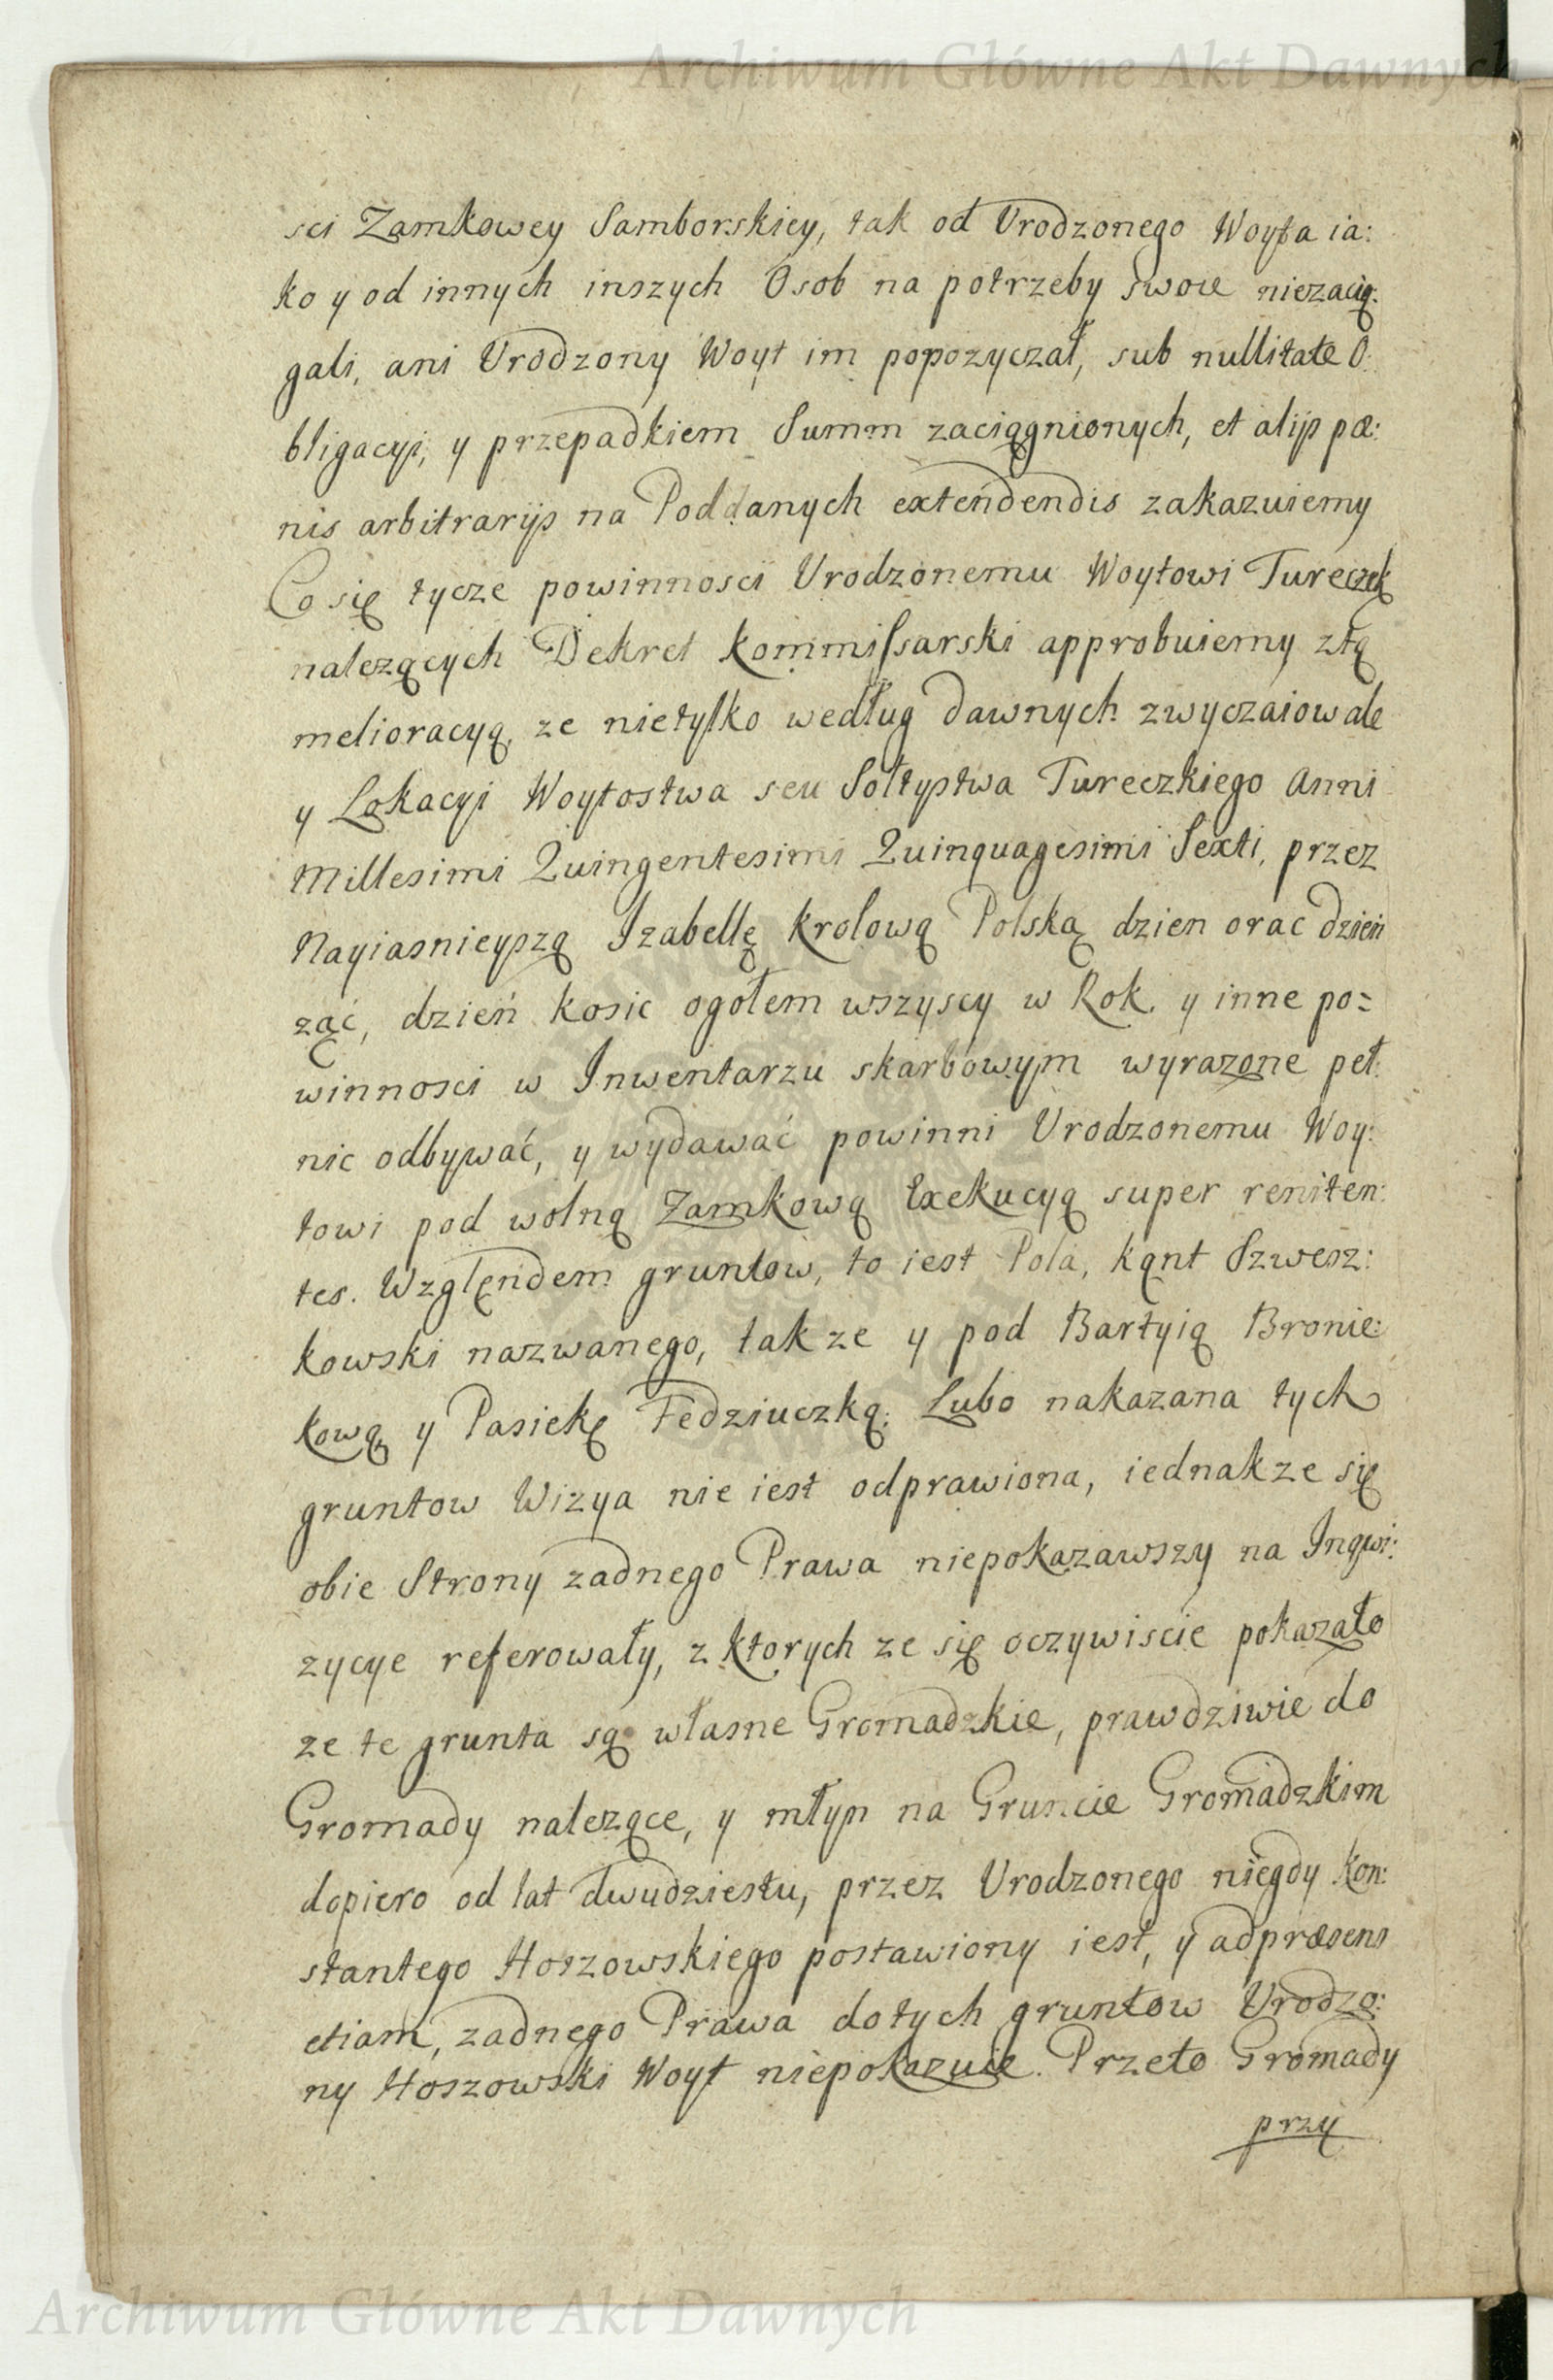 Archiwum Główne Akt Dawnych
sci Zamkowey Samborskiey, tak od Urodzonego Woyta ia:
ko y od innych inszych Osob na potrzeby swoie niezacią:
gali, ani Urodzony Woyt im popozyczał, sub nullitate O:
bligacyi, y przepadkiem Summ zaciągnionych, et alijs pæ:
nis arbitrarijs na Poddanych extendendis zakazuiemy
Co się tycze powinnosci Urodzonemu Woytowi Tureczk
nalezących Dekret Kommissarski approbuiemy ztą
melioracyą, ze nietylko według dawnych zwyczaiow ale
y Lokacyi Woytostwa seu Sołtystwa Tureczkiego Anni
Millesimi Quingentesimi Quinquagesimi Sexti, przez
Nayiasnieyszą Izabellę Krolową Polską dzien orac dzień
ząć, dzień kosic ogołem wszyscy w Rok y inne po=
winnosci w Inwentarzu skarbowym wyrazone peł:
nic odbywać, y wydawać powinni Urodzonemu Woy:
towi pod wolną Zamkową Exekucyą super reniten:
tes. Względem gruntow, to iest Pola, kąnt Szwesz:
kowski nazwanego, takze y pod Bartyią Bronie:
kową, y Pasiekę Fedziuczką: Lubo nakazana tych
gruntow Wizya nie iest odprawiona, iednakze się
obie Strony zadnego Prawa niepokazawszy na Inqwi:
zycye referowały, z ktorych ze się oczywiscie pokazało
ze te grunta są własne Gromadzkie, prawdziwie do
Gromady nalezące, y młyn na Gruncie Gromadzkim
dopiero od lat dwudziestu, przez Urodzonego niegdy Kon:
stantego Hoszowskiego postawiony iest, y adpræsens
etiam, zadnego Prawa dotych gruntow Urodzo:
ny Hoszowski Woyt niepokazuie. Przeto Gromady
przy
Archiwum Główne Akt Dawnych